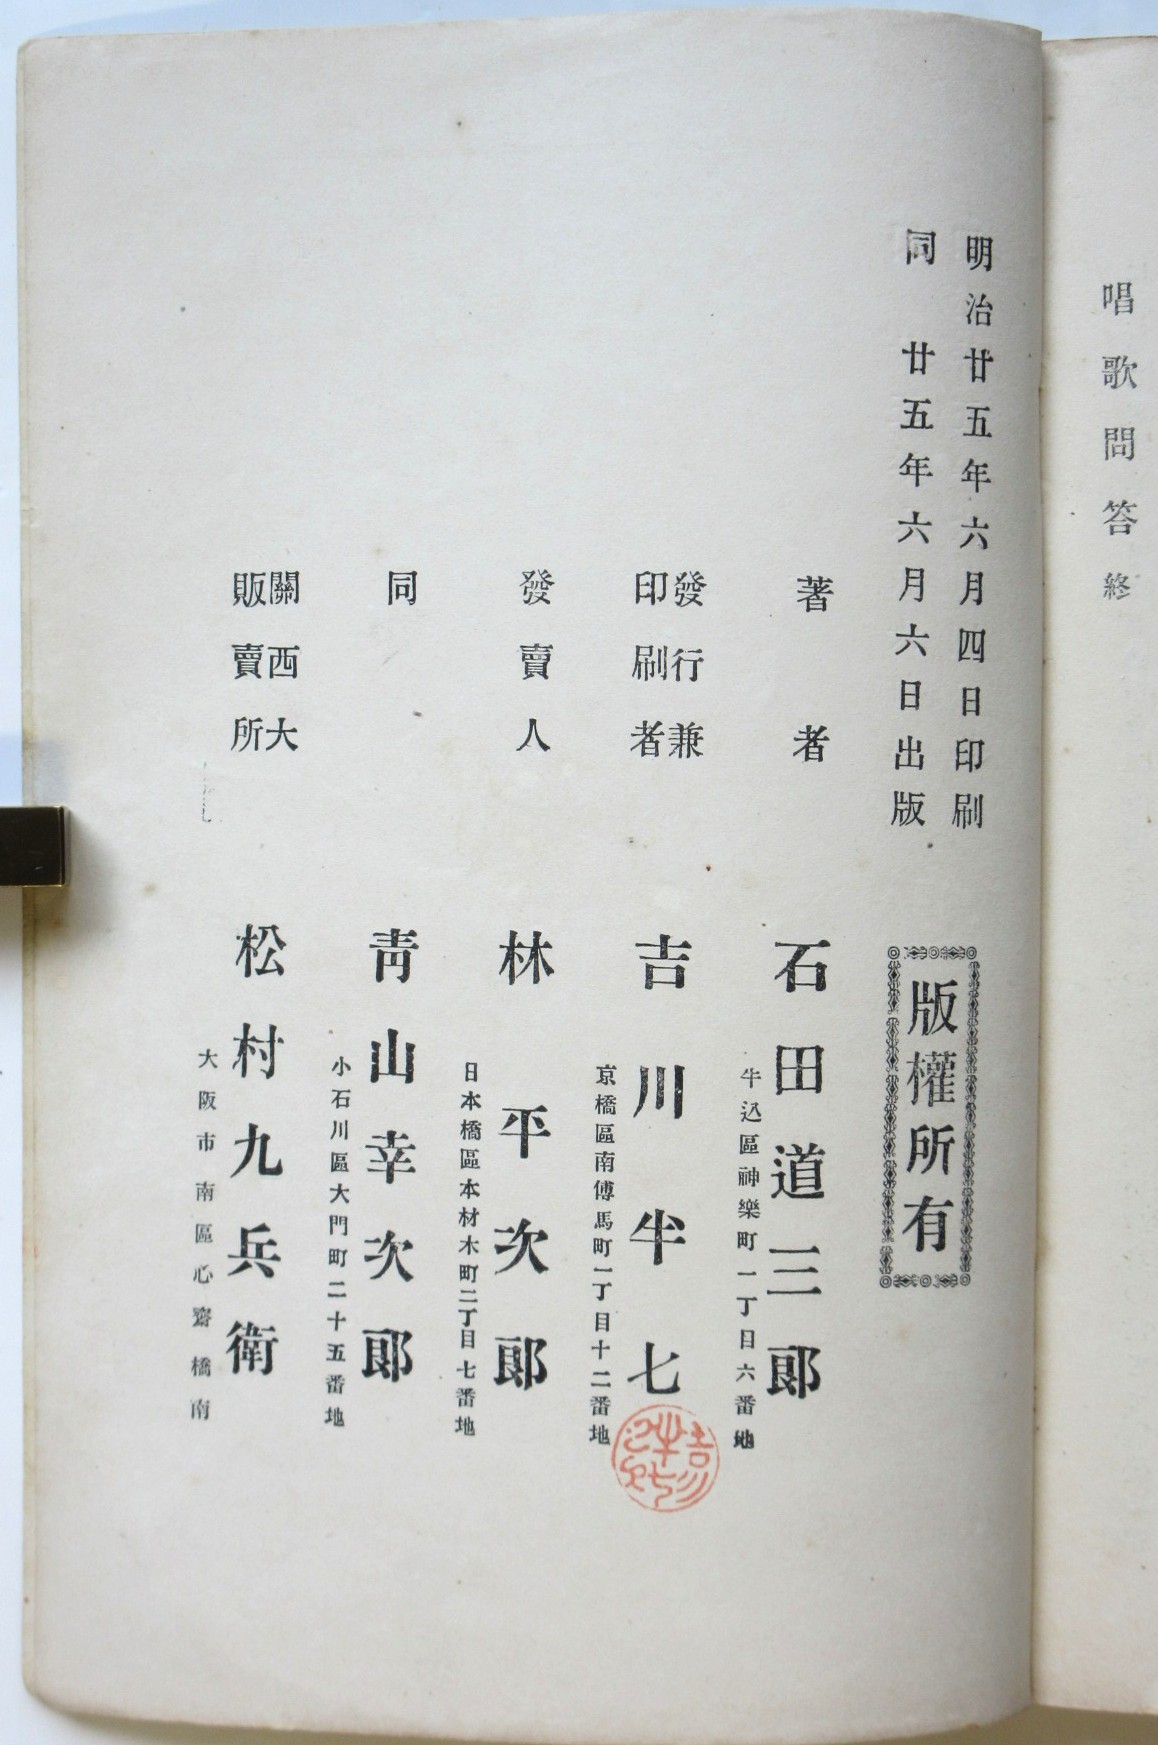 唱歌問答終
明治廿五年六月四日印刷
同 廿五年六月六日出版
版權所有
著者
石田道三郎
牛込區神樂町一丁目六番地
發行兼
印刷者
吉川半七
京橋區南傳馬町一丁目十二番地
發賣人
林平次郎
日本橋區本材木町二丁目七番地
同
青山幸次郎
小石川區大門町二十五番地
關西大
販賣所
松村九兵衛
大阪市南區心齋橋南